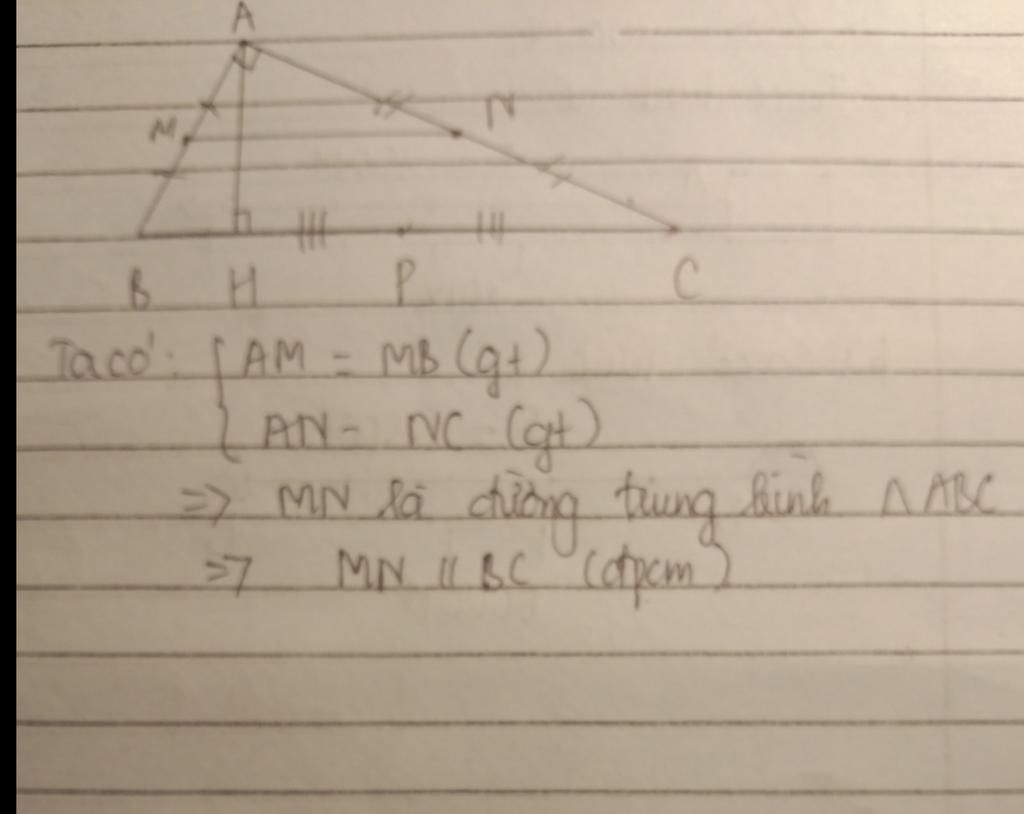 A
M
N
B H P C
Ta có: { AM = MB (gt)
AN - NC (gt)
=> MN là đường trung bình Δ ABC
=> MN // BC (đpcm)